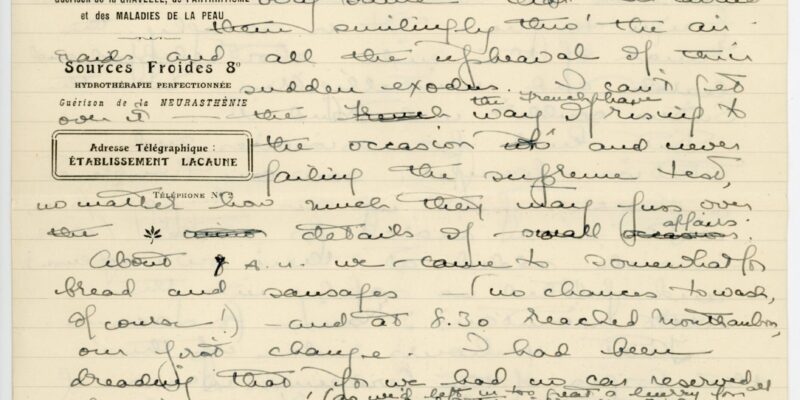 et des MALADIES DE LA PEAU
them smilingly thro' the air
raids and all the upheaval of their
Sources Froides 8°
sudden exodus. I can't get
HYDROTHÉRAPIE PERFECTIONNÉE
Guérison de la NEURASTHÉNIE
over it — the French way the French have of rising to
Adresse Télégraphique :
ÉTABLISSEMENT LACAUNE
the occasion and never
failing the supreme test,
TÉLÉPHONE No 2
no matter how much they may fuss over
the minor details of small affairs.
About 8 A.M. we came to somewhat for
bread and sausages — (no chances to wash,
of course!) — and at 8.30 reached Montauban,
our first change. I had been
dreading that for we had no car reserved
(as we'd left in too great a hurry for all